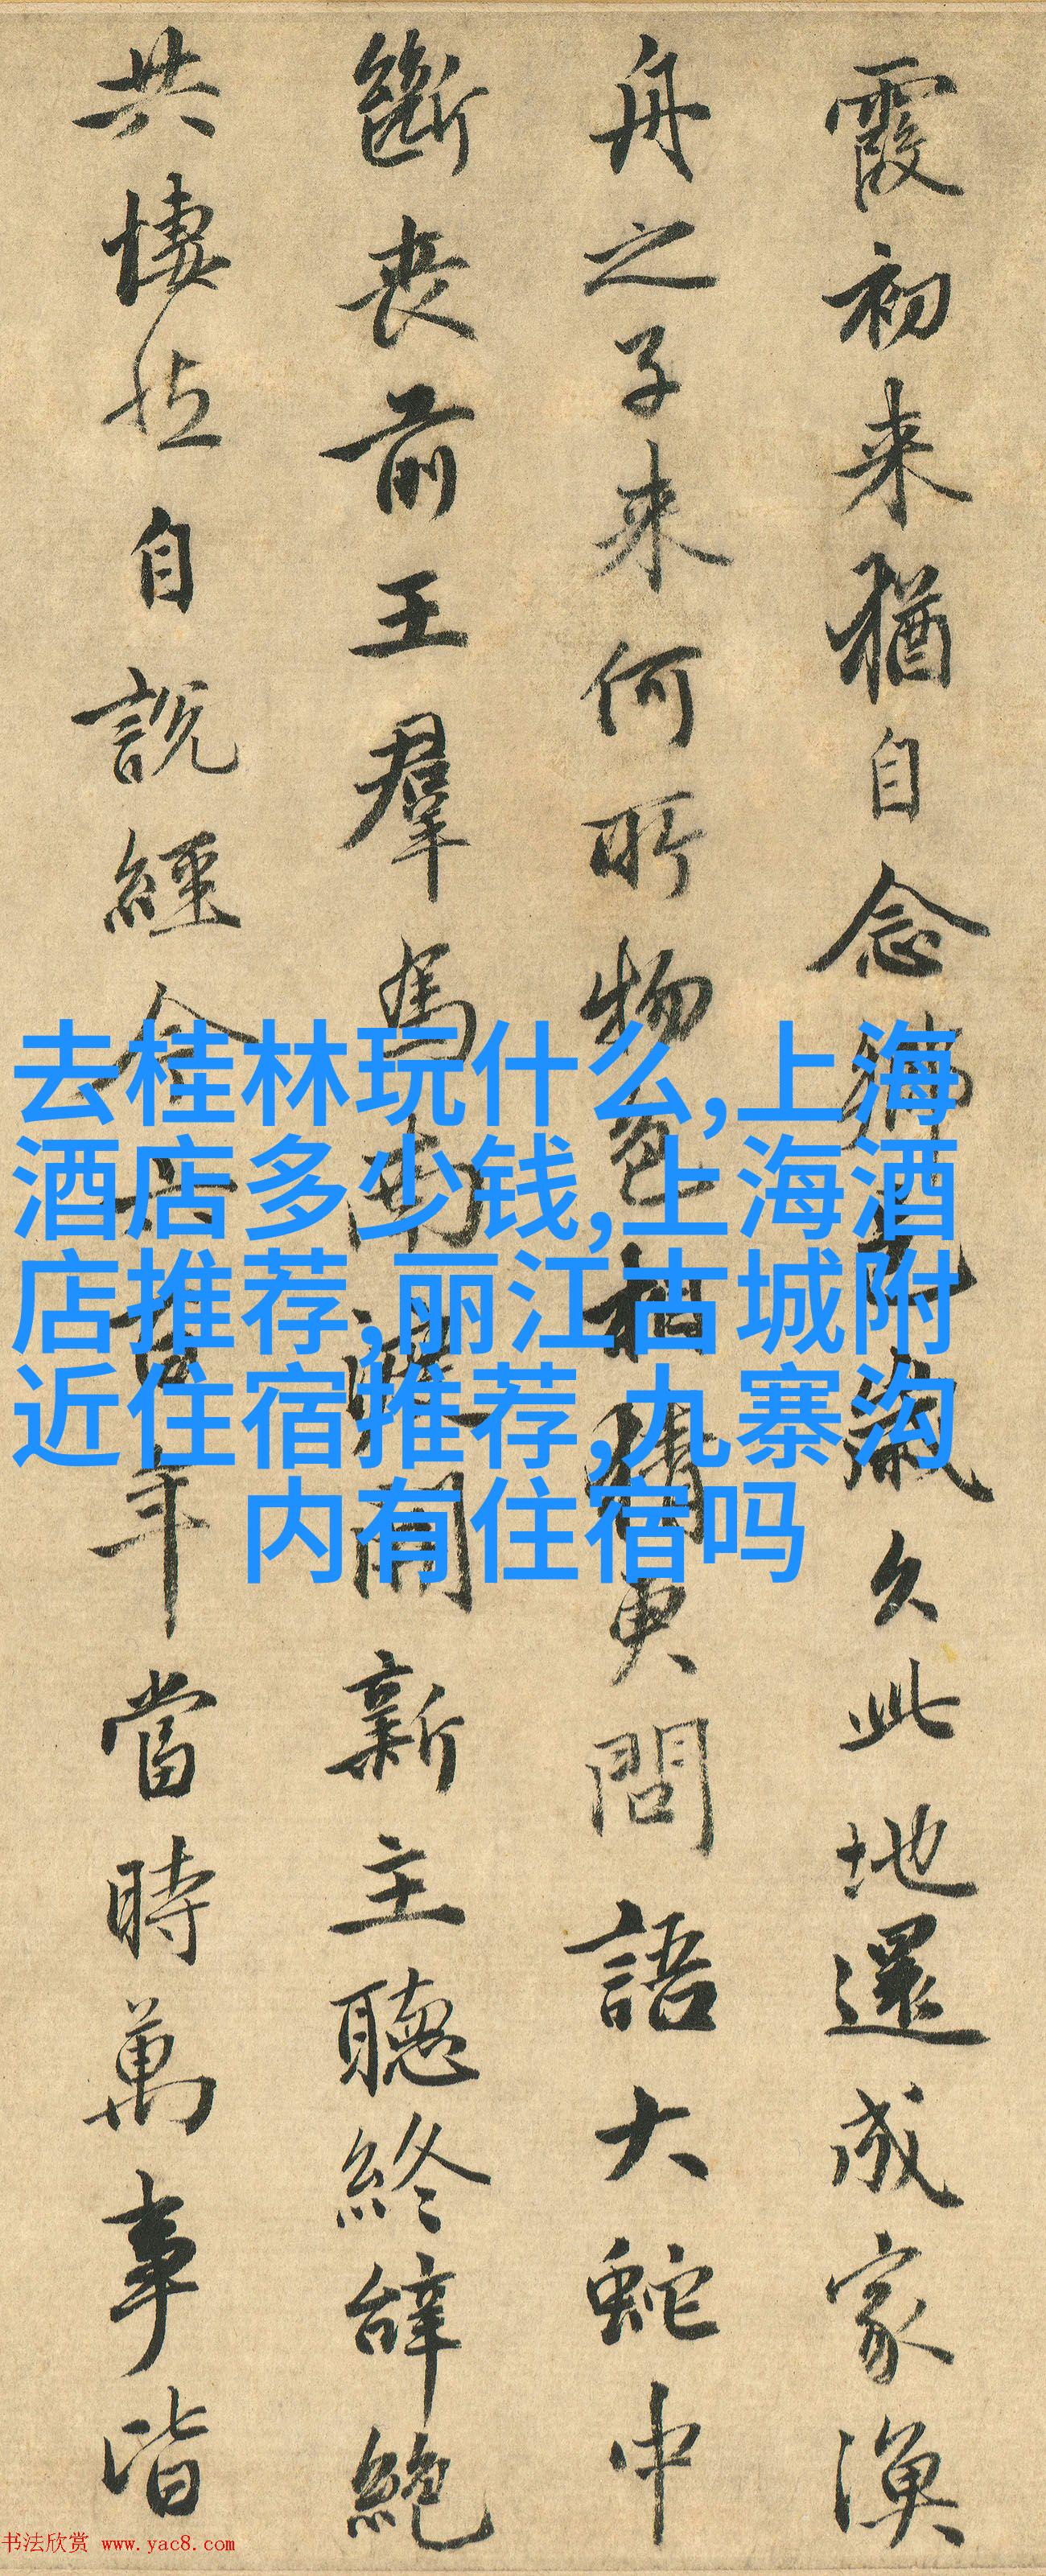 霞初来猶自念鄉邑歲久此地還成家漁
舟之子来何所物色相猜更問語大蛇中
斷喪前王羣馬南渡開新主聽終辭絶
共悽然自説經今六百年當時萬事皆
去桂林玩什么,上海
酒店多少钱,上海酒
店推荐,丽江古城附
近住宿推荐,九寨沟
内有住宿吗
书法欣赏 www.yac8.com